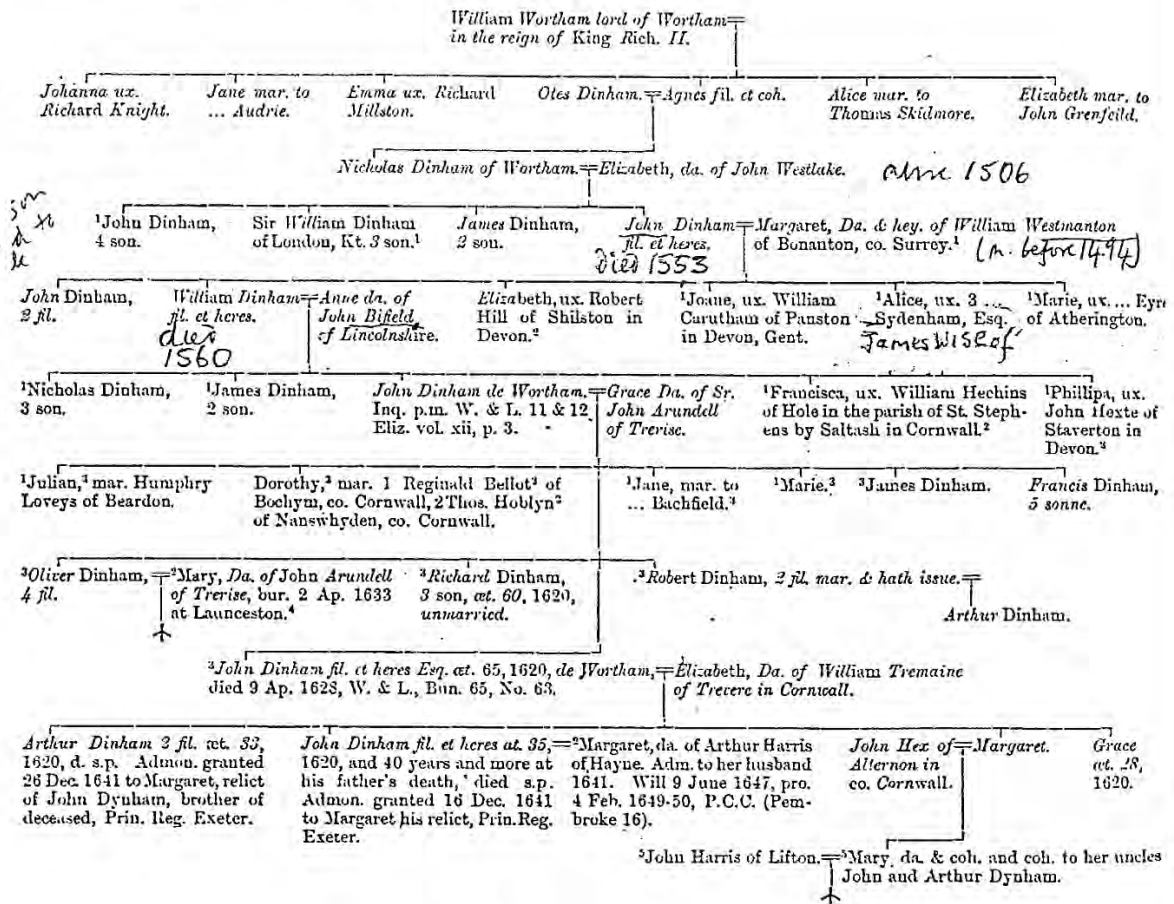 William Wortham lord of Wortham
in the reign of King Rich. II.
Johanna ux.
Richard Knight.
Jane mar. to
... Audrie.
Emma ux. Richard
Millston.
Otes Dinham.
Agnes fil. et coh.
Alice mar. to
Thomas Skidmore.
Elizabeth mar. to
John Grenfeild.
Nicholas Dinham of Wortham.
Elizabeth, da. of John Westlake.
alive 1506
¹John Dinham,
4 son.
Sir William Dinham
of London, Kt. 3 son.¹
James Dinham,
2 son.
John Dinham
fil. et heres.
died 1553
Margaret, Da. & hey. of William Westmanton
of Bonanton, co. Surrey.¹
(m. before 1494)
John Dinham,
2 fil.
William Dinham
fil. et heres.
died
1560
Anne da. of
John Bifield
of Lincolnshire.
Elizabeth, ux. Robert
Hill of Shilston in
Devon.²
¹Joane, ux. William
Carutham of Panston
in Devon, Gent.
¹Alice, ux. 3 ...
Sydenham, Esq.
James Wise of
¹Marie, ux. ... Eyre
of Atherington.
¹Nicholas Dinham,
3 son.
¹James Dinham,
2 son.
John Dinham de Wortham.
Inq. p.m. W. & L. 11 & 12
Eliz. vol. xii, p. 3.
Grace Da. of Sr.
John Arundell
of Trerise.
¹Francisca, ux. William Hechins
of Hole in the parish of St. Steph-
ens by Saltash in Cornwall.²
¹Phillipa, ux.
John Hexte of
Staverton in
Devon.³
¹Julian,³ mar. Humphry
Loveys of Beardon.
Dorothy,³ mar. 1 Reginald Bellot³ of
Bochym, co. Cornwall, 2 Thos. Hoblyn²
of Nanswhyden, co. Cornwall.
¹Jane, mar. to
... Bachfield.³
¹Marie.³
³James Dinham.
Francis Dinham,
5 sonne.
³Oliver Dinham,
4 fil.
²Mary, Da. of John Arundell
of Trerise, bur. 2 Ap. 1633
at Launceston.⁴
³Richard Dinham,
3 son, æt. 60, 1620,
unmarried.
³Robert Dinham, 2 fil. mar. & hath issue.
Arthur Dinham.
³John Dinham fil. et heres Esq. æt. 65, 1620, de Wortham,
died 9 Ap. 1628, W. & L., Bun. 65, No. 63.
Elizabeth, Da. of William Tremaine
of Trecere in Cornwall.
Arthur Dinham 2 fil. æt. 33,
1620, d. s.p. Admon. granted
26 Dec. 1641 to Margaret, relict
of John Dynham, brother of
deceased, Prin. Reg. Exeter.
John Dinham fil. et heres æt. 35,
1620, and 40 years and more at
his father's death, died s.p.
Admon. granted 16 Dec. 1641
to Margaret his relict, Prin. Reg.
Exeter.
²Margaret, da. of Arthur Harris
of Hayne. Adm. to her husband
1641. Will 9 June 1647, pro.
4 Feb. 1649-50, P.C.C. (Pem-
broke 16).
John Hex of
Alternon in
co. Cornwall.
Margaret.
Grace
æt. 28,
1620.
⁵John Harris of Lifton.
⁵Mary, da. & coh. and coh. to her uncles
John and Arthur Dynham.